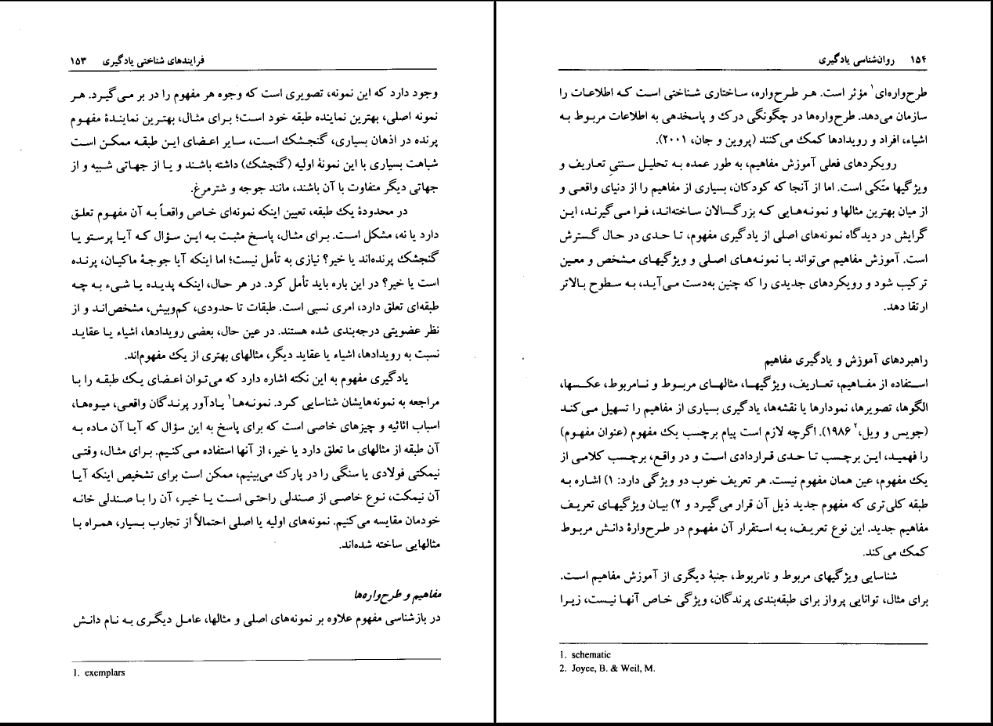 فرایندهای شناختی یادگیری ۱۵۳
وجود دارد که این نمونه، تصویری است که وجوه هر مفهوم را در بر می‌گیرد. هر
نمونه اصلی، بهترین نماینده طبقه خود است؛ برای مثال، بهترین نمایندهٔ مفهوم
پرنده در اذهان بسیاری، گنجشک است، سایر اعضای این طبقه ممکن است
شباهت بسیاری با این نمونهٔ اولیه (گنجشک) داشته باشند و یا از جهاتی شبیه و از
جهاتی دیگر متفاوت با آن باشند، مانند جوجه و شترمرغ.
در محدودهٔ یک طبقه، تعیین اینکه نمونه‌ای خاص واقعاً به آن مفهوم تعلق
دارد یا نه، مشکل است. برای مثال، پاسخ مثبت به این سؤال که آیا پرستو یا
گنجشک پرنده‌اند یا خیر؟ نیازی به تأمل نیست؛ اما اینکه آیا جوجهٔ ماکیان، پرنده
است یا خیر؟ در این باره باید تأمل کرد. در هر حال، اینکه پدیده یا شیء به چه
طبقه‌ای تعلق دارد، امری نسبی است. طبقات تا حدودی، کم‌وبیش، مشخص‌اند و از
نظر عضویتی درجه‌بندی شده هستند. در عین حال، بعضی رویدادها، اشیاء یا عقاید
نسبت به رویدادها، اشیاء یا عقاید دیگر، مثالهای بهتری از یک مفهوم‌اند.
یادگیری مفهوم به این نکته اشاره دارد که می‌توان اعضای یک طبقه را با
مراجعه به نمونه‌هایشان شناسایی کرد. نمونه‌ها۱ یادآور پرندگان واقعی، میوه‌ها،
اسباب اثاثیه و چیزهای خاصی است که برای پاسخ به این سؤال که آیا آن ماده به
آن طبقه از مثالهای ما تعلق دارد یا خیر، از آنها استفاده می‌کنیم. برای مثال، وقتی
نیمکتی فولادی یا سنگی را در پارک می‌بینیم، ممکن است برای تشخیص اینکه آیا
آن نیمکت، نوع خاصی از صندلی راحتی است یا خیر، آن را با صندلی خانه
خودمان مقایسه می‌کنیم. نمونه‌های اولیه یا اصلی احتمالاً از تجارب بسیار، همراه با
مثالهایی ساخته شده‌اند.
مفاهیم و طرح‌واره‌ها
در بازشناسی مفهوم علاوه بر نمونه‌های اصلی و مثالها، عامل دیگری به نام دانش
1. exemplars
۱۵۴ روان‌شناسی یادگیری
طرح‌واره‌ای۱ مؤثر است. هر طرح‌واره، ساختاری شناختی است که اطلاعات را
سازمان می‌دهد. طرح‌واره‌ها در چگونگی درک و پاسخدهی به اطلاعات مربوط به
اشیاء، افراد و رویدادها کمک می‌کنند (پروین و جان، ۲۰۰۱).
رویکردهای فعلی آموزش مفاهیم، به طور عمده به تحلیل سنتیِ تعاریف و
ویژگیها متّکی است. اما از آنجا که کودکان، بسیاری از مفاهیم را از دنیای واقعی و
از میان بهترین مثالها و نمونه‌هایی که بزرگسالان ساخته‌اند، فرا می‌گیرند، این
گرایش در دیدگاه نمونه‌های اصلی از یادگیری مفهوم، تا حدی در حال گسترش
است. آموزش مفاهیم می‌تواند با نمونه‌های اصلی و ویژگیهای مشخص و معین
ترکیب شود و رویکردهای جدیدی را که چنین به‌دست می‌آید، به سطوح بالاتر
ارتقا دهد.
راهبردهای آموزش و یادگیری مفاهیم
استفاده از مفاهیم، تعاریف، ویژگیها، مثالهای مربوط و نامربوط، عکسها،
الگوها، تصویرها، نمودارها یا نقشه‌ها، یادگیری بسیاری از مفاهیم را تسهیل می‌کند
(جویس و ویل،۲ ۱۹۸۶). اگرچه لازم است پیام برچسب یک مفهوم (عنوان مفهوم)
را فهمید، این برچسب تا حدی قراردادی است و در واقع، برچسب کلامی از
یک مفهوم، عین همان مفهوم نیست. هر تعریف خوب دو ویژگی دارد: ۱) اشاره به
طبقه کلی‌تری که مفهوم جدید ذیل آن قرار می‌گیرد و ۲) بیان ویژگیهای تعریف
مفاهیم جدید. این نوع تعریف، به استقرار آن مفهوم در طرح‌وارهٔ دانش مربوط
کمک می‌کند.
شناسایی ویژگیهای مربوط و نامربوط، جنبهٔ دیگری از آموزش مفاهیم است.
برای مثال، توانایی پرواز برای طبقه‌بندی پرندگان، ویژگی خاص آنها نیست، زیرا
1. schematic
2. Joyce, B. & Weil, M.